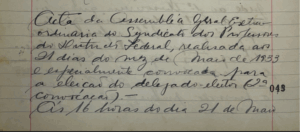 Acta da Assembléa Geral Extra-
ordinaria do Syndicato dos Professores
do Districto Federal, realizada aos
21 dias do mez de Maio de 1933
e especialmente convocada para
a eleição do delegado-eleitor (2ª
convocação) —
Ás 16 horas do dia 21 de Maio
049